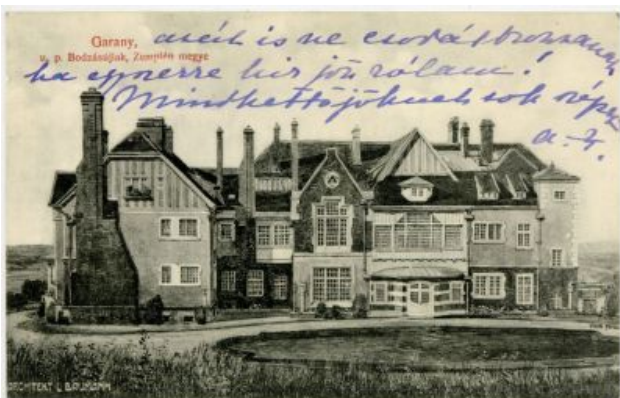 Garany,
u. p. Bodzásújlak, Zemplén megye
azért is ne csodálkozzanak
ha egyszerre hír jön rólam!
Mindkettőjöknek sok szépet
ARCHITEKT L BAUMANN